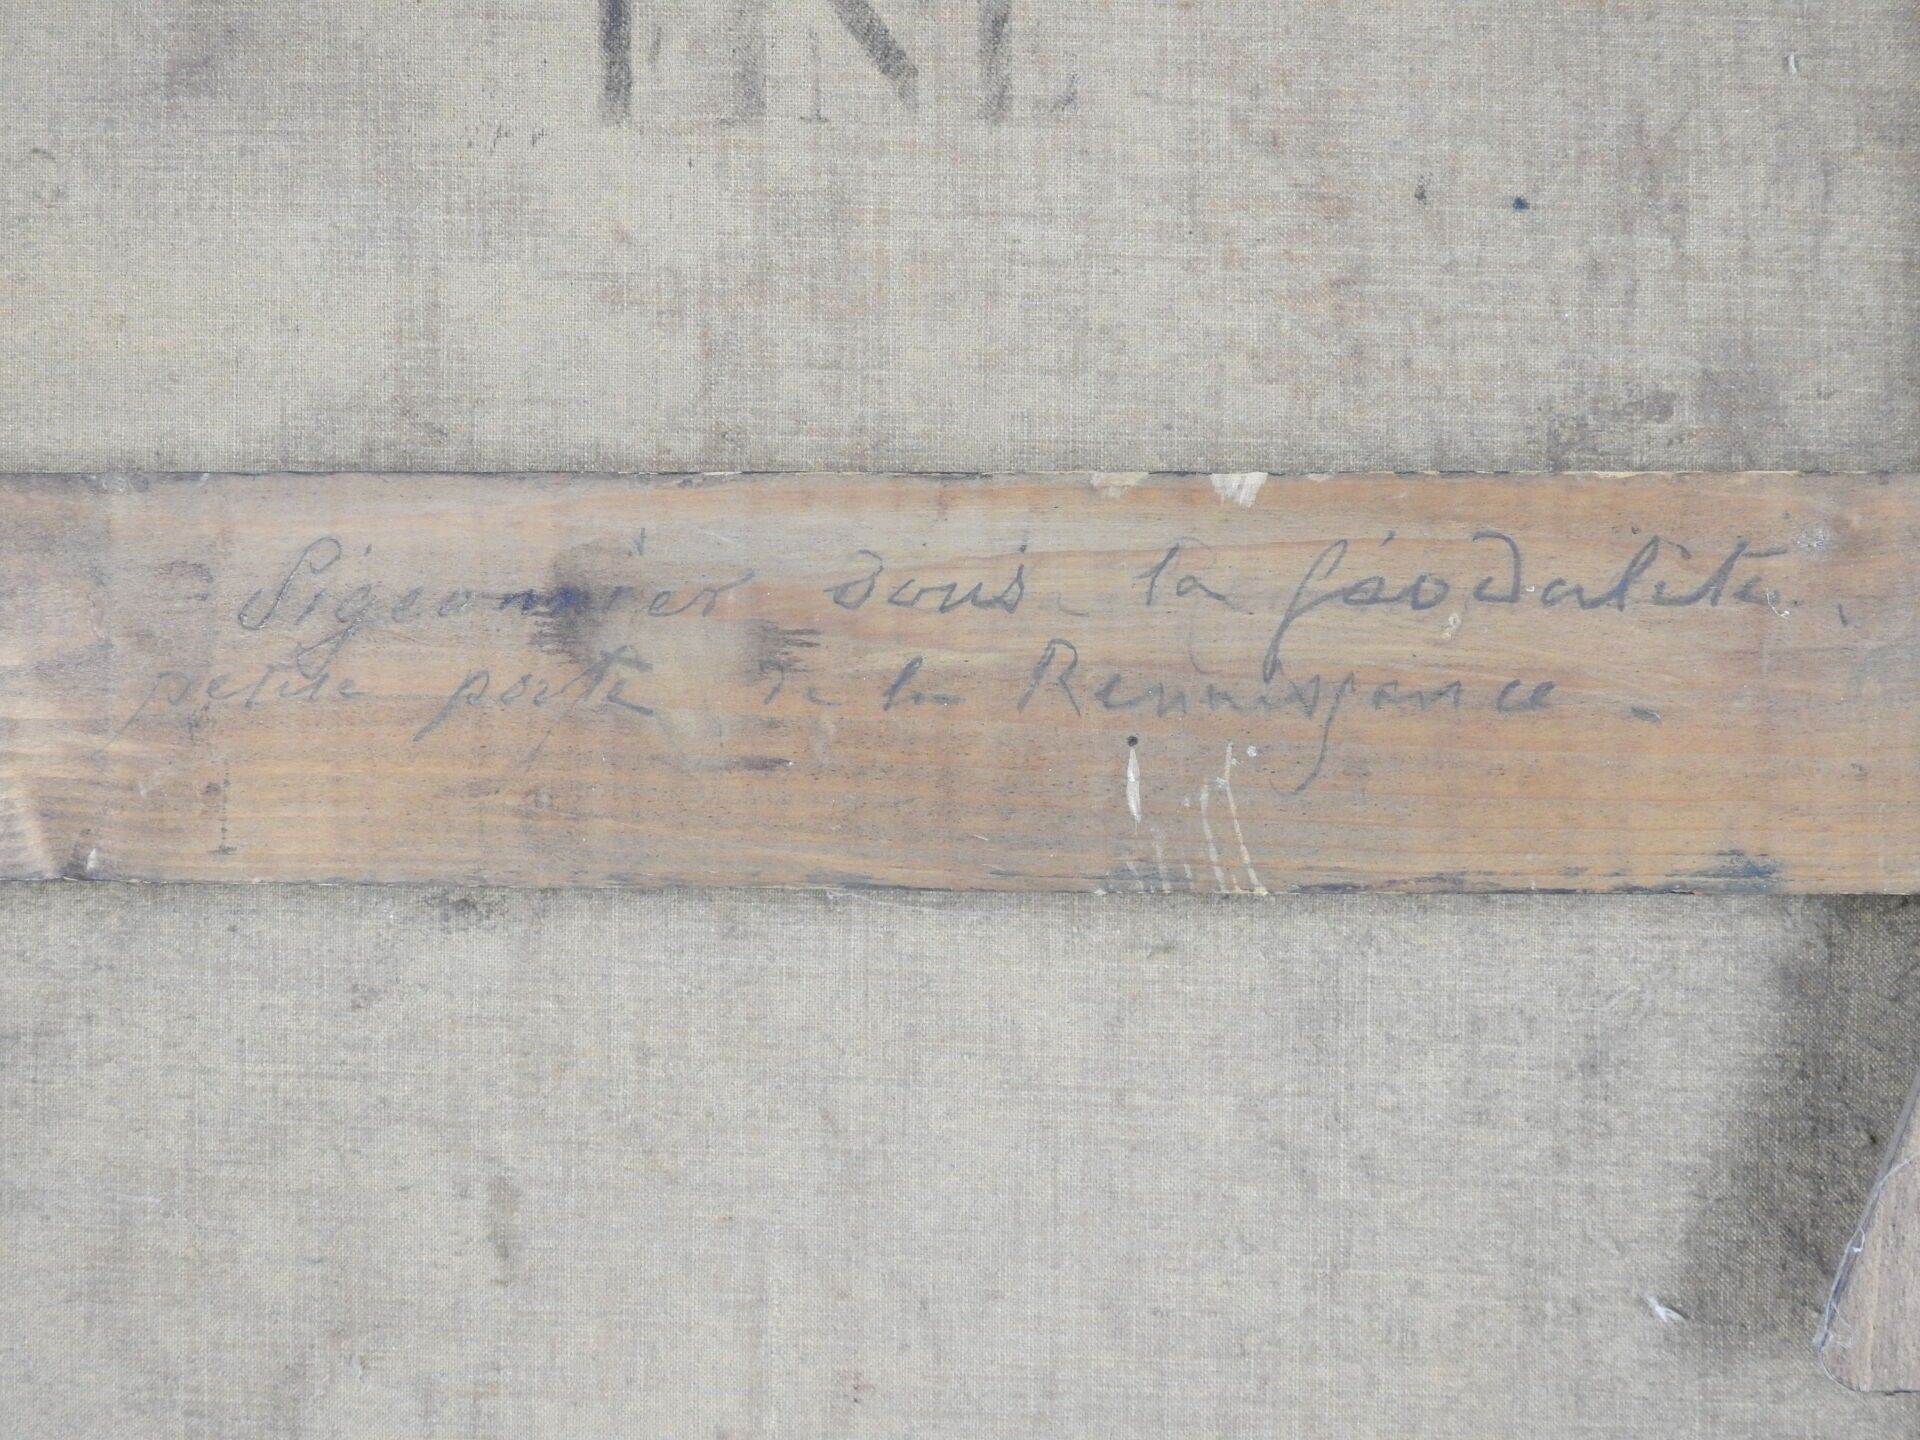 Pigeonnier sous la féodalité.
petite porte de la Renaissance.